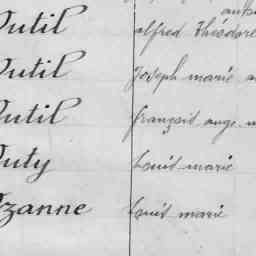 Dutil alfred Théodore
Dutil Joseph marie
Dutil françois ange
Duty Louis marie
Ozanne Louis marie